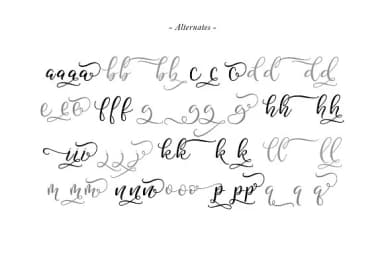 ~ Alternates ~
aaaa bb bb c c c dd dd
e e e fff g gg g hh hh
ii jjj kk kk ll ll
m mm nnn ooo p pp q q q